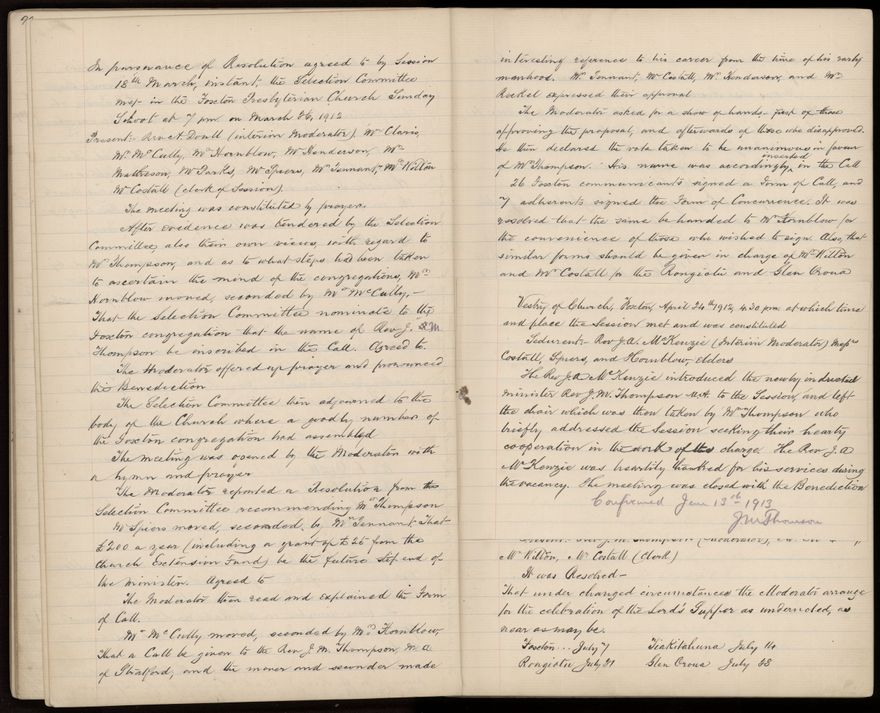 In persevance of Resolution agreed to by Session
18th March, instant, the Selection Committee
met in the Foxton Presbyterian Church Sunday
School at 7 pm on March 26, 1912
Present:- Rev A Doull (interim Moderator) Mr Claris,
Mr McCully, Mrs Hornblow, Mr Henderson, Mr
Matheson, Mr Parks, Mr Spiers, Mr Tennant, Mr Wilton
Mr Costall (clerk of Session)
The meeting was constituted by prayer.
After evidence was tendered by the Selection
Committee, also their own views, with regard to
Mr Thompson, and as to what steps had been taken
to ascertain the mind of the congregations, Mrs
Hornblow moved, seconded by Mr McCully,-
That the Selection Committee nominate to the
Foxton congregation that the name of Rev J. M.
Thompson be inscribed in the Call. Agreed to.
The Moderator offered up prayer and pronounced
the Benediction
The Selection Committee then adjourned to the
body of the Church where a goodly number of
the Foxton congregation had assembled
The meeting was opened by the Moderator with
a hymn and prayer
The Moderator reported a Resolution from the
Selection Committee recommending Mr Thompson
Mr Spiers moved, seconded by Mr Tennant That
£200 a year (including a grant up to £25 from the
Church Extension Fund) be the future stipend of
the minister. Agreed to
The Moderator then read and explained the Form
of Call.
Mr McCully moved, seconded by Mrs Hornblow,
That a Call be given to the Rev J. M. Thompson, M.A
of Stratford, and the mover and seconder made
interesting reference to his career from the time of his early
manhood. Mr Tennant, Mr Costall, Mr Henderson, and Mr
expressed their approval
The Moderator asked for a show of hands first of those
approving the proposal, and afterwards of those who disapproved.
He then declared the vote taken to be unanimous in favour
of Mr Thompson. His name was accordingly inserted in the Call
26 Foxton communicants signed a Form of Call, and
7 adherents signed the Form of Concurrence. It was
resolved that the same be handed to Mr Hornblow for
the convenience of those who wished to sign. Also, that
similar forms should be given in charge of Mr Wilton
and Mr Costall for the Rongiotu and Glen Oroua
Vestry of Church, Foxton, April 24th 1912, 4.30 pm. at which time
and place the Session met and was constituted
Sederunt:- Rev J.A. McKenzie (Interim Moderator) Messrs
Costall, Spiers, and Hornblow, elders
The Rev J.A McKenzie introduced the newly inducted
minister Rev J.M. Thompson M.A. to the Session, and left
the chair which was then taken by Mr Thompson who
briefly addressed the Session seeking their hearty
cooperation in the work of the charge. The Rev. J.A
McKenzie was heartily thanked for his services during
the vacancy. The meeting was closed with the Benediction
Confirmed Jan 13th 1913
J M Thomson
Mr Wilton, Mr Costall (Clerk)
It was Resolved-
That under changed circumstances the Moderator arrange
for the celebration of the Lord's Supper as undernoted, as
near as may be.
Foxton... July 7 Tiakitahuna July 14
Rongiotu July 21 Glen Oroua July 28